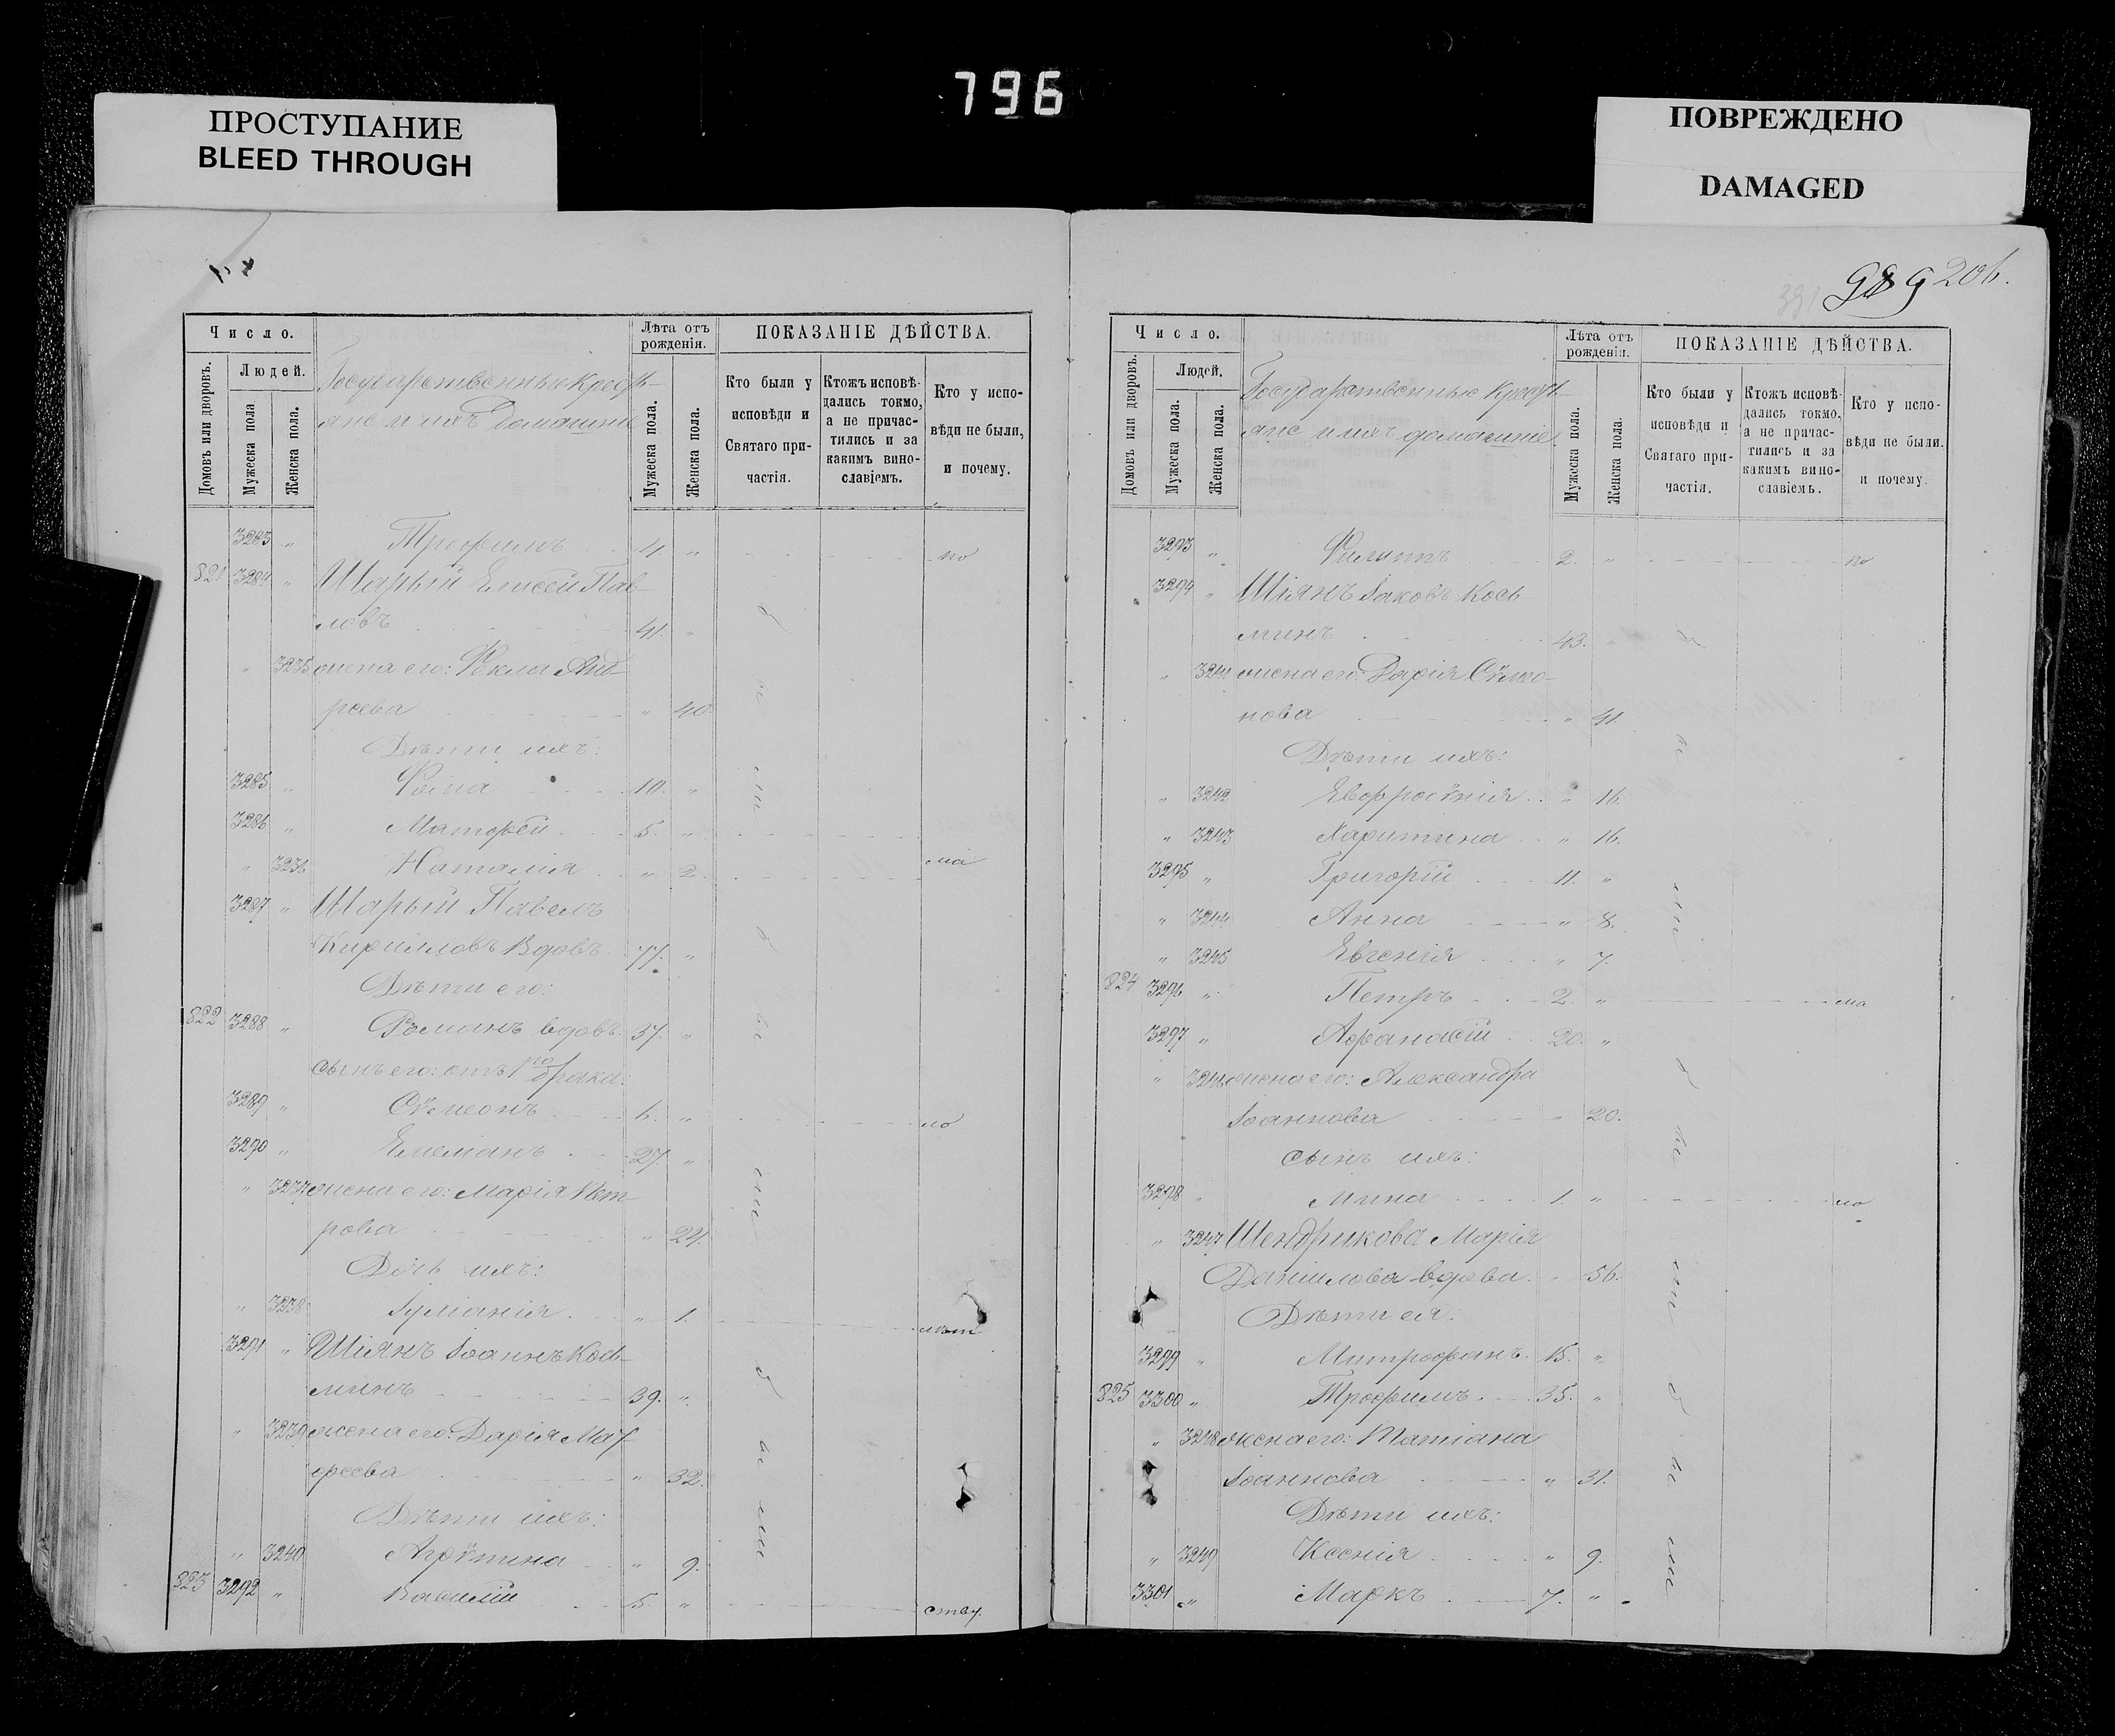 796
ПРОСТУПАНИЕ
BLEED THROUGH
ПОВРЕЖДЕНО
DAMAGED
Число.
Людей.
Домовъ или дворовъ.
Мужеска пола
Женска пола.
Государственные Кресть-
яне и ихъ Домашніе
Лѣта отъ рожденія.
Мужеска пола.
Женска пола.
ПОКАЗАНІЕ ДѢЙСТВА.
Кто были у исповѣди и Святаго при-частія.
Ктожъ исповѣ-дались токмо, а не причас-тились и за какимъ вино-славіемъ.
Кто у испо-вѣди не были, и почему.
3283 " Трофимъ 4 " по
821 3284 " Шарый Елисей Пав-
ловъ 41. "
" 3235 жена его: Ѳекла Анд-
реева " 40.
Дѣти ихъ:
3285 " Ѳома 10. "
3286 " Матѳей 5. "
" 3236 Наталія " 2. ма
3287 " Шарый Павелъ
Кирилловъ Вдовъ 77. "
Дѣти его:
822 3288 " Романъ вдовъ 37. "
сынъ его: отъ 1го брака:
3289 " Сѵмеонъ 6. " ло
3290 " Емеліанъ 27. "
" 3237 жена его: Марія Пет-
рова " 24.
Дочь ихъ:
" 3238 Іуліанія " 1. лѣт
3291 " Шіянъ Іоаннъ Кось-
минъ 39. "
" 3239 жена его: Дарія Мат-
ѳеева " 32.
Дѣти ихъ:
" 3240 Агрѵпина " 9.
823 3292 " Василій 5. " ству.
были
989 206.
Число.
Людей.
Домовъ или дворовъ.
Мужеска пола.
Женска пола.
Государственные Кресть-
яне и ихъ домашніе
Лѣта отъ рожденія.
Мужеска пола.
Женска пола.
ПОКАЗАНІЕ ДѢЙСТВА.
Кто были у исповѣди и Святаго при-частія.
Ктожъ исповѣ-дались токмо, а не причас-тились и за какимъ вино-славіемъ.
Кто у испо-вѣди не были. и почему.
3293 " Филиппъ 2. " по
3294 " Шіянъ Іаковъ Кось-
минъ 43. "
" 3241 жена его: Дарія Сѵмео-
нова " 41.
Дѣти ихъ:
" 3242 Евфросѵнія " 16.
" 3243 Харитина " 16.
3295 " Григорій 11. "
" 3244 Анна " 8.
" 3245 Евгенія " 7.
824 3296 " Петръ 2. " ма
3297 " Аѳанасій 20. "
" 3246 жена его: Александра
Іоаннова " 20.
сынъ ихъ:
3298 " Мина 1. " ло
" 3247 Шендрикова Марія
Даніилова вдова " 56.
Дѣти ея:
3299 " Митрофанъ 15. "
825 3300 " Трофимъ 35. "
" 3248 жена его: Татіана
Іоаннова " 31.
Дѣти ихъ:
" 3249 Ксенія " 9.
3301 " Маркъ 7. "
были